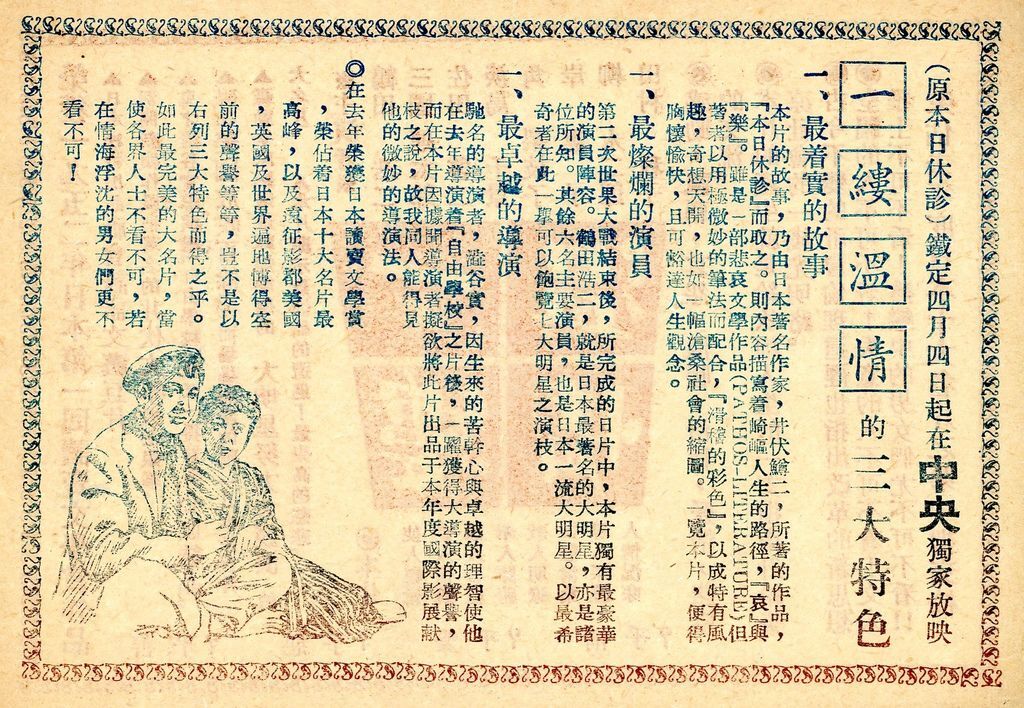 （原本日休診）鐵定四月四日起在中央獨家放映
一縷溫情的三大特色
一、最着實的故事
本片的故事，乃由日本著名作家，井伏鱒二，所著的作品，
『本日休診』而取之。則內容描寫着崎嶇人生的路徑，『哀』與
『樂』。雖是一部悲哀文學作品(PATHOS-LITERATURE)但
著者以用極微妙的筆法而配合，『滑稽的彩色』，以成特有風
趣，奇想天開，也如一幅滄桑社會的縮圖。一覽本片，便得
胸懷愉快，且可豁達人生觀念。
一、最燦爛的演員
第二次世界大戰結束後，所完成的日片中，本片獨有最豪華
的演員陣容。鶴田浩二，就是日本最著名的大明星，亦是諸
位所知。其餘六名主要演員，也是日本一流大明星。以最希
奇者在此一擧可以飽覽七大明星之演枝。
一、最卓越的導演
馳名的導演者，澁谷實，因生來的苦幹心與卓越的理智使他
在去年導演着『自由學校』之片後，一躍獲得大導演的聲譽，
而在本片因據聞導演者擬欲將此片出品于本年度國際影展献
枝之說，故我同人能得見
他的微妙的導演法。
◎在去年榮獲日本讀賣文學賞
，榮佔着日本十大名片最
高峰，以及遠征影都美國
，英國及世界遍地博得空
前的聲譽等等，豈不是以
右列三大特色而得之乎。
如此最完美的大名片，當
使各界人士不看不可，若
在情海浮沈的男女們更不
看不可！